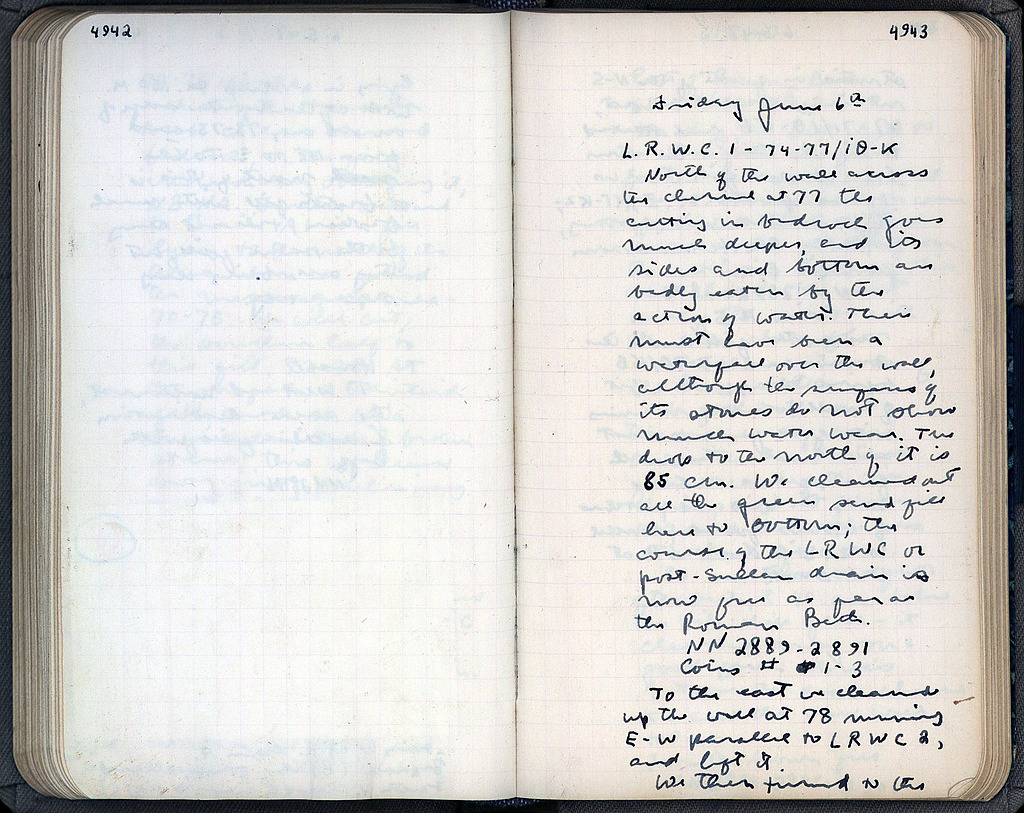 4942
4943
Friday June 6th
L.R.W.C. 1 - 74-77/ΙΘ-Κ
North of the wall across
the channel at 77 the
cutting in bedrock goes
much deeper, and its
sides and bottom are
badly eaten by the
action of water. There
must have been a
waterfall over the wall,
although the surfaces of
its stones do not show
much water wear. The
drop to the north of it is
85 cm. We cleaned out
all the green sand fill
here to bottom; the
course of the LRWC or
post-Sullan drain is
now free as far as
the Roman Bath.
NN 2889-2891
Coins # 1-3
To the east we cleaned
up the wall at 78 running
E-W parallel to LRWC 2,
and left it.
We then turned to the